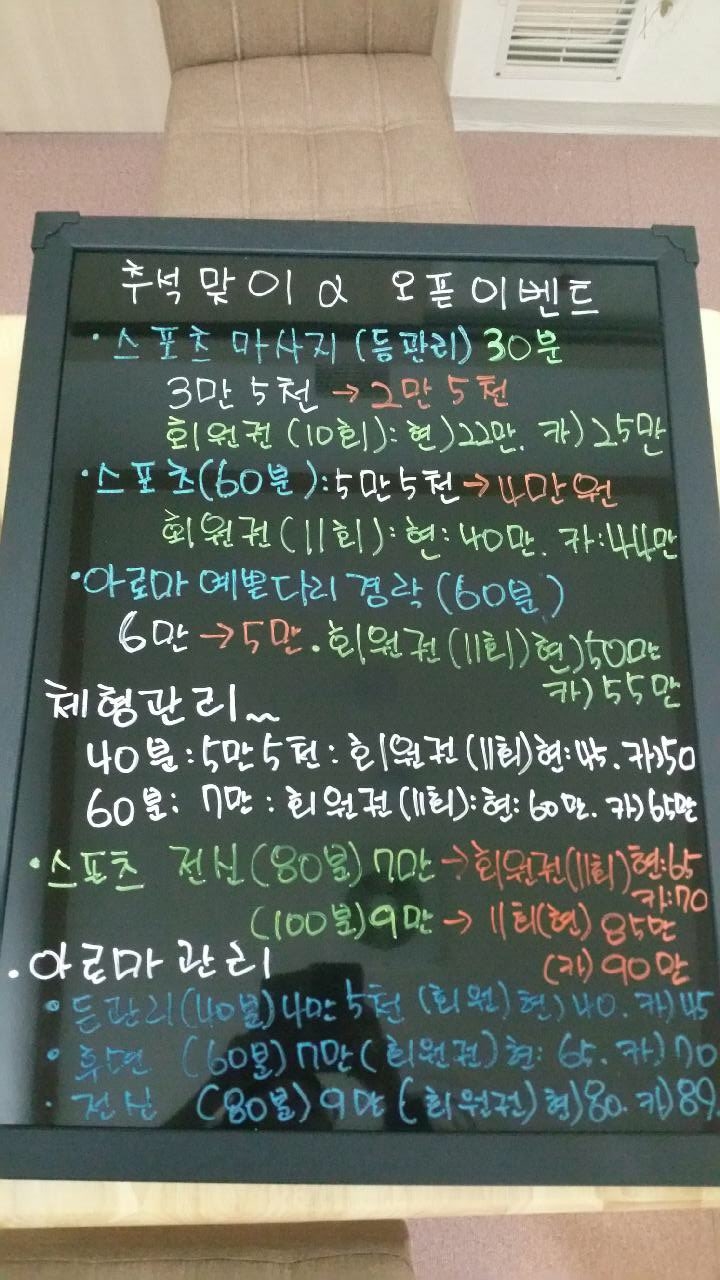 추석 맞이 & 오픈이벤트
·스포츠 마사지 (등관리) 30분
3만 5천 → 2만 5천
회원권 (10회): 현)22만. 카)25만
·스포츠(60분):5만5천→4만원
회원권(11회): 현:40만. 카:44만
·아로마 예쁜다리 경락 (60분)
6만→5만.회원권(11회)현)50만
카)55만
체형관리~
40분:5만5천:회원권(11회)현:45.카)50
60분: 7만:회원권(11회):현:60만.카)65만
·스포츠 전신(80분)7만→회원권(11회)현:65
카:70
(100분)9만→ 11회(현) 85만
(카) 90만
.아로마 관리
·등관리(40분)4만5천 (회원)현)40.카)45
·후면 (60분)7만(회원권)현: 65.카)70
·전신 (80분)9만(회원권)현)80.카)89